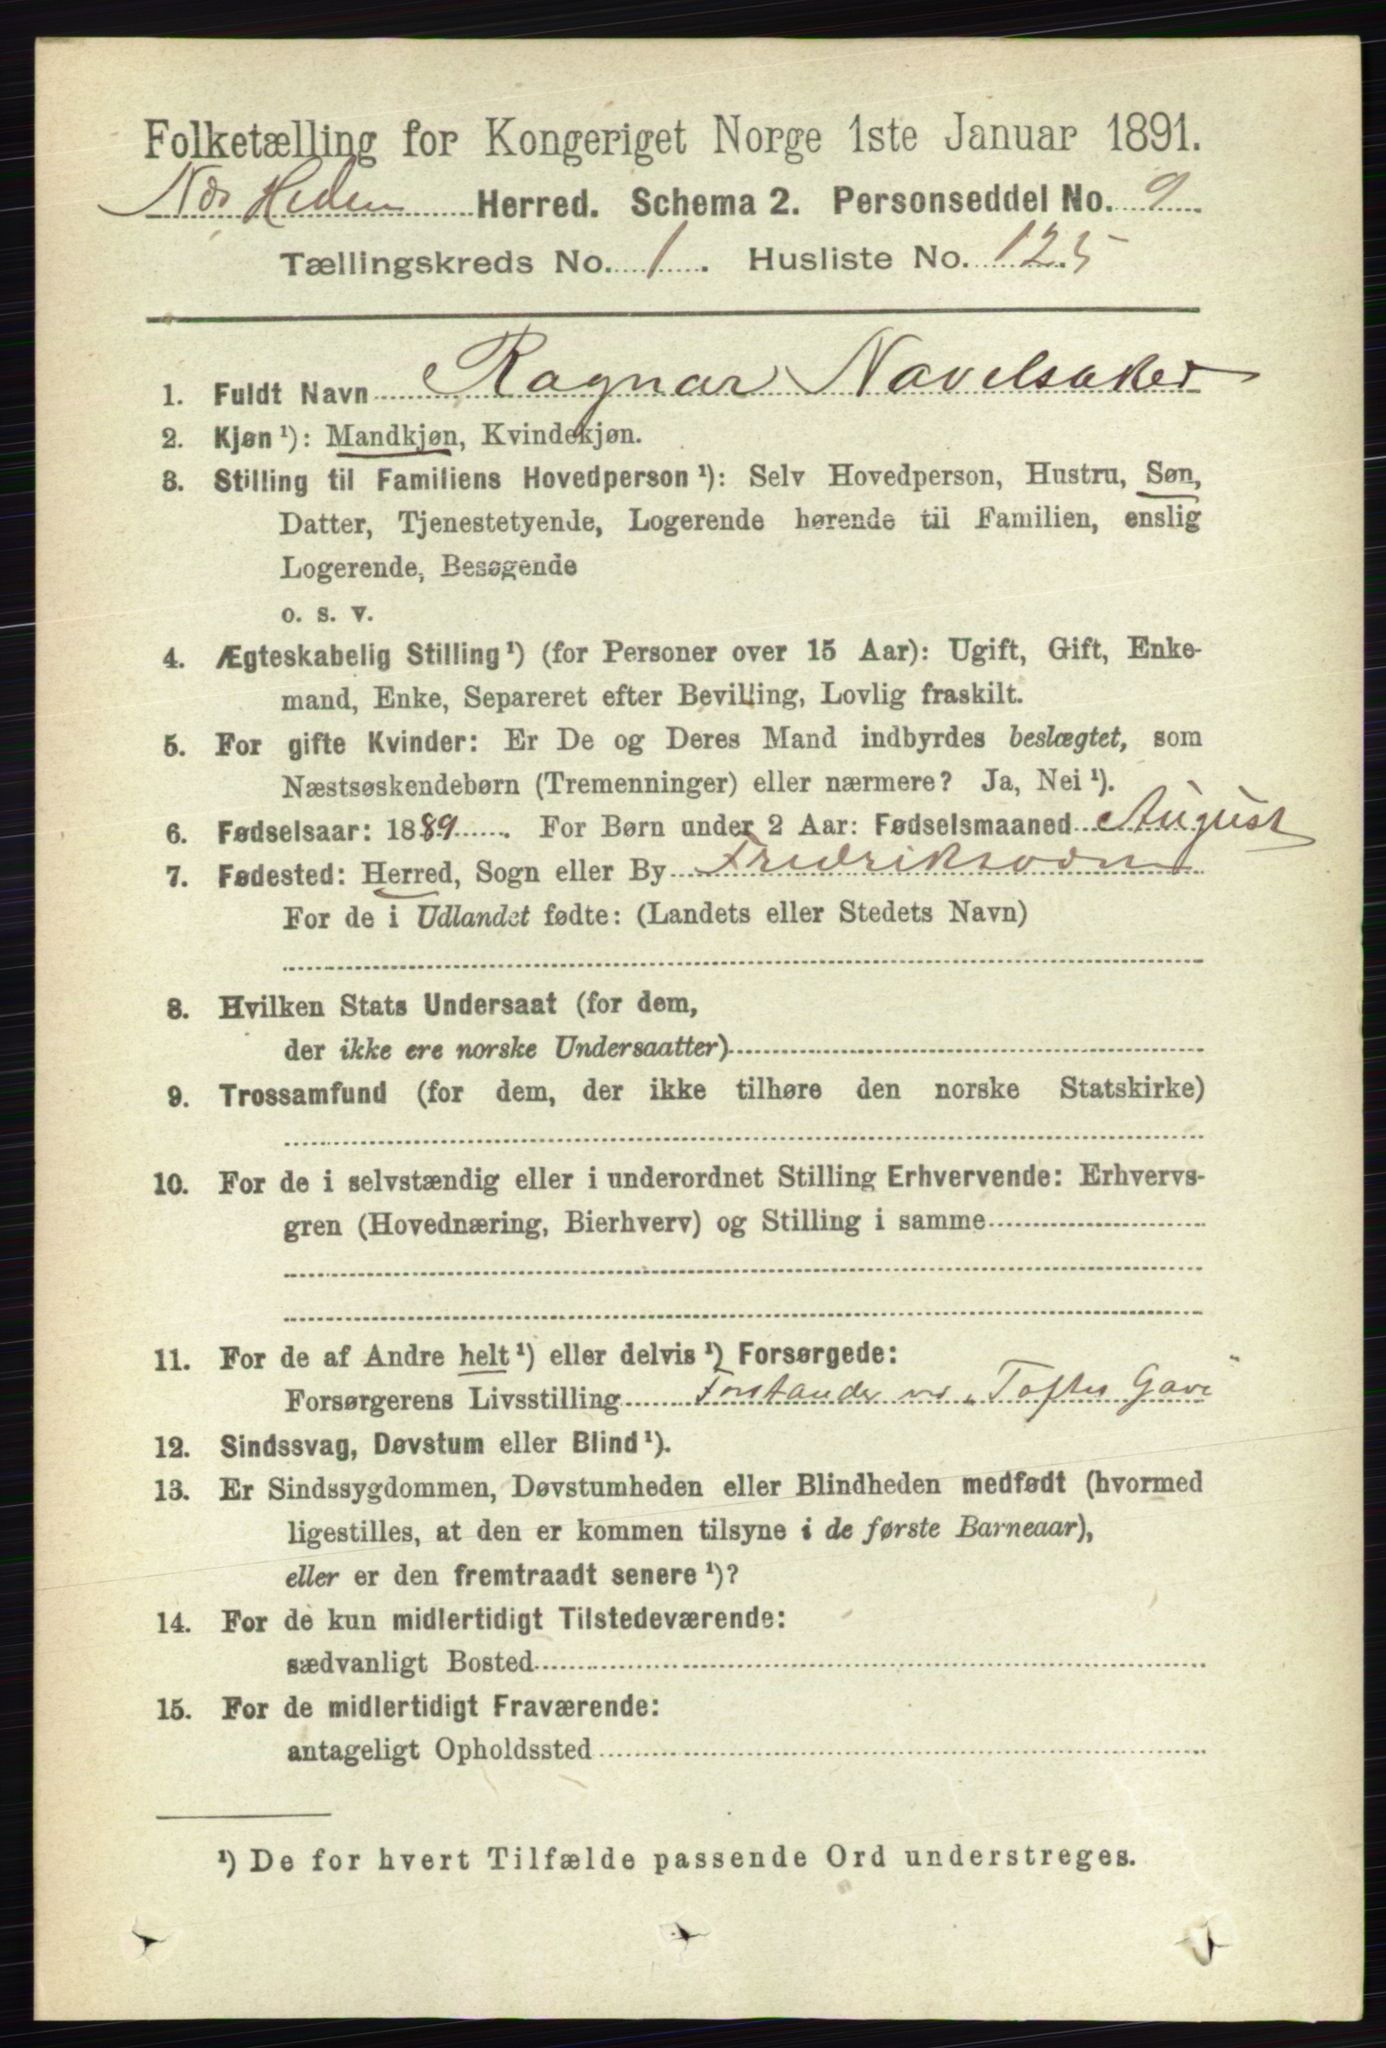 Folketælling for Kongeriget Norge 1ste Januar 1891.
Nes Heden Herred. Schema 2. Personseddel No. 9.
Tællingskreds No. 1. Husliste No. 125
1. Fuldt Navn Ragnar Navelsaker
2. Kjøn ¹): Mandkjøn, Kvindekjøn.
3. Stilling til Familiens Hovedperson ¹): Selv Hovedperson, Hustru, Søn,
Datter, Tjenestetyende, Logerende hørende til Familien, enslig
Logerende, Besøgende
o. s. v.
4. Ægteskabelig Stilling ¹) (for Personer over 15 Aar): Ugift, Gift, Enke-
mand, Enke, Separeret efter Bevilling, Lovlig fraskilt.
5. For gifte Kvinder: Er De og Deres Mand indbyrdes beslægtet, som
Næstsøskendebørn (Tremenninger) eller nærmere? Ja, Nei ¹).
6. Fødselsaar: 1889. For Børn under 2 Aar: Fødselsmaaned August
7. Fødested: Herred, Sogn eller By Fredriksværn
For de i Udlandet fødte: (Landets eller Stedets Navn)
8. Hvilken Stats Undersaat (for dem,
der ikke ere norske Undersaatter)
9. Trossamfund (for dem, der ikke tilhøre den norske Statskirke)
10. For de i selvstændig eller i underordnet Stilling Erhvervende: Erhvervs-
gren (Hovednæring, Bierhverv) og Stilling i samme
11. For de af Andre helt ¹) eller delvis ¹) Forsørgede:
Forsørgerens Livsstilling Forstander ved „Toftes Gave"
12. Sindssvag, Døvstum eller Blind ¹).
13. Er Sindssygdommen, Døvstumheden eller Blindheden medfødt (hvormed
ligestilles, at den er kommen tilsyne i de første Barneaar),
eller er den fremtraadt senere ¹)?
14. For de kun midlertidigt Tilstedeværende:
sædvanligt Bosted
15. For de midlertidigt Fraværende:
antageligt Opholdssted
¹) De for hvert Tilfælde passende Ord understreges.